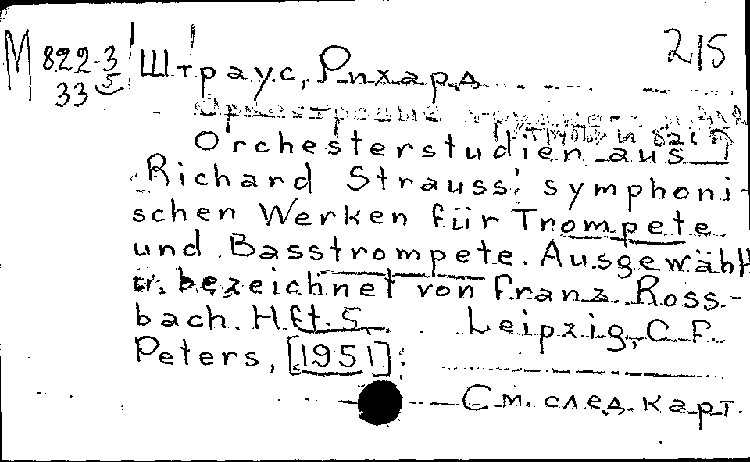 М 822-3 Штраус, Рихард 2/5
33 5
Orchesterstudien aus
Richard Strauss' symphoni-
schen Werken für Trompete
und Basstrompete. Ausgewählt
u. bezeichnet von Franz Ross-
bach. Hft. 5. Leipzig, C. F.
Peters, [1951].
См. след. карт.